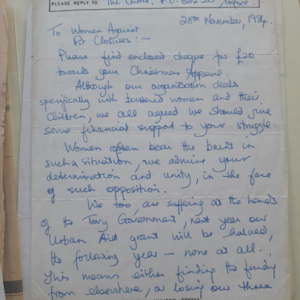 PLEASE REPLY TO
28th November, 1984.
To Women Against
Pit Closures:-
Please find enclosed cheque for £20
towards your Christmas Appeal.
Although our organisation deals
specifically with battered women and their
Children, we all agreed we should give
some financial support to your struggle.
Women often bear the brunt in
such a situation, we admire your
determination and unity, in the face
of such opposition.
We too are suffering at the hands
of the Tory Government, next year our
Urban Aid grant will be halved,
the following year - none at all.
This means either finding the funding
from elsewhere, or losing our three